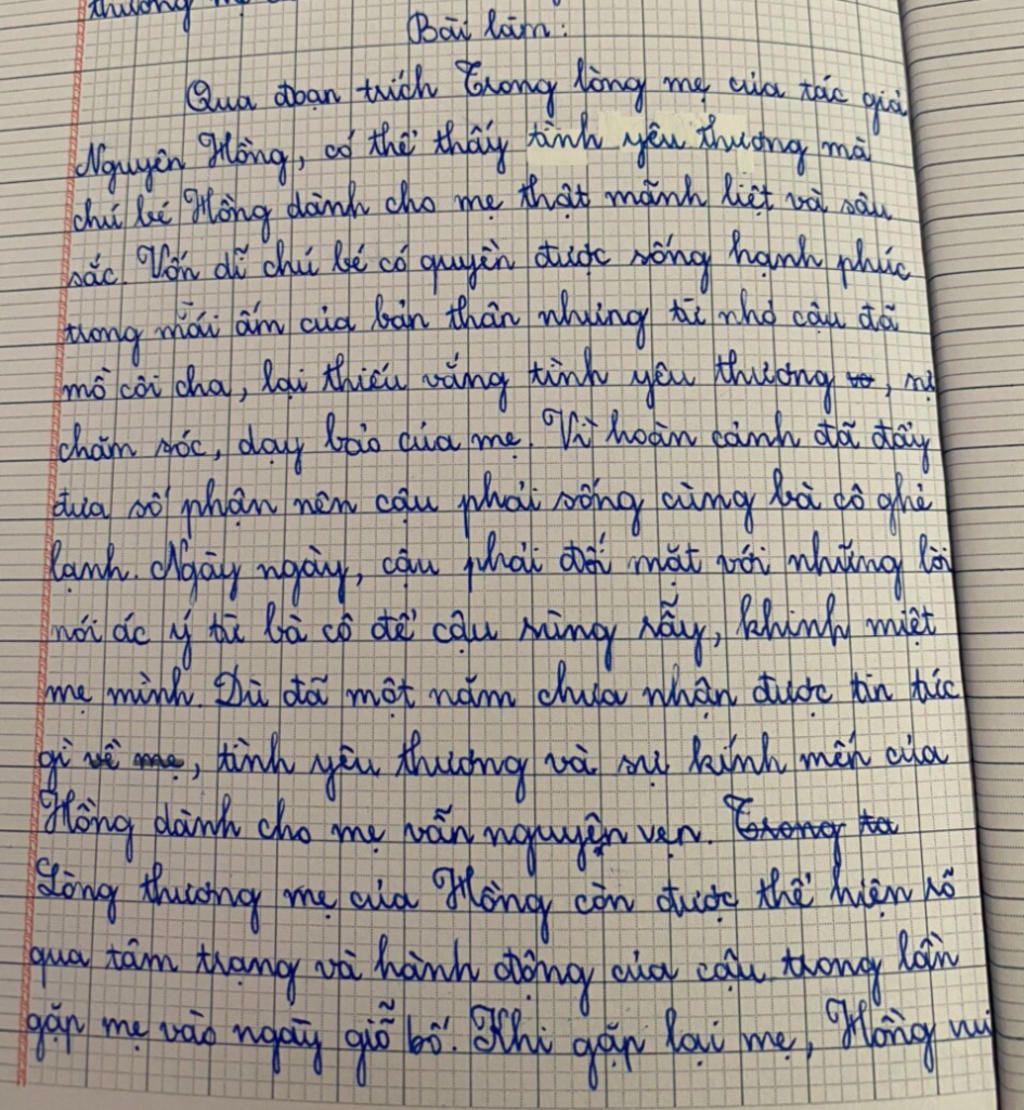 thương mẹ
Bài làm:
Qua đoạn trích Trong lòng mẹ của tác giả
Nguyên Hồng, có thể thấy tình yêu thương mà
chú bé Hồng dành cho mẹ thật mãnh liệt và sâu
sắc. Vốn dĩ chú bé có quyền được sống hạnh phúc
trong mái ấm của bản thân nhưng từ nhỏ cậu đã
mồ côi cha, lại thiếu vắng tình yêu thương vơ, sự
chăm sóc, dạy bảo của mẹ. Vì hoàn cảnh đã đẩy
đưa số phận nên cậu phải sống cùng bà cô ghẻ
lạnh. Ngày ngày, cậu phải đối mặt với những lời
nói ác ý từ bà cô để cậu ruồng rẫy, khinh miệt
mẹ mình. Dù đã một năm chưa nhận được tin tức
gì về mẹ, tình yêu thương và sự kính mến của
Hồng dành cho mẹ vẫn nguyên vẹn. Trong ta
Lòng thương mẹ của Hồng còn được thể hiện rõ
qua tâm trạng và hành động của cậu trong lần
gặp mẹ vào ngày giỗ bố. Khi gặp lại mẹ, Hồng